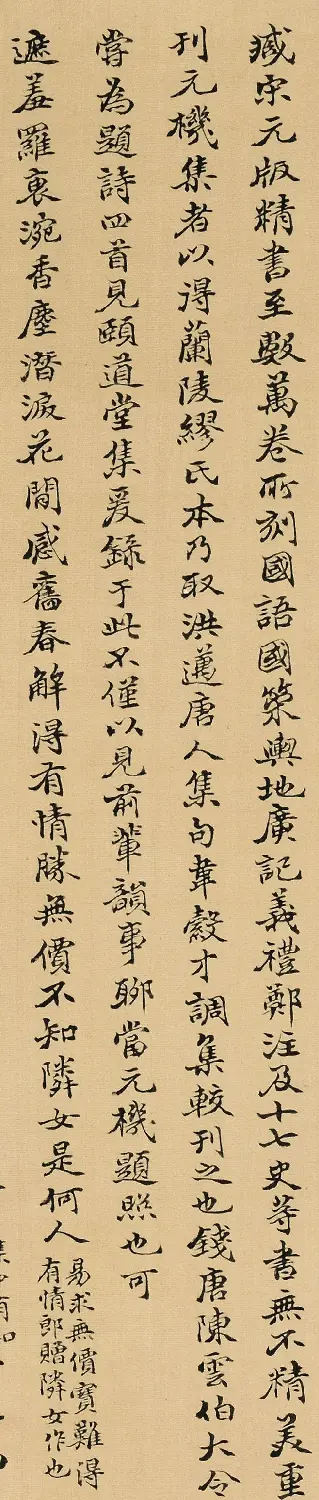 臧宋元版精書至數萬卷所刻國語國策輿地廣記義禮鄭注及十七史等書無不精美重
刊元機集者以得蘭陵繆氏本乃取洪邁唐人集句韋縠才調集較刊之也錢唐陳雲伯大令
嘗為題詩四首見頤道堂集爰錄于此不僅以見前輩韻事聊當元機題照也可
遮羞羅裹浣香塵潛淚花間感舊春解得有情勝無價不知隣女是何人
易求無價寶難得
有情郎贈隣女作也